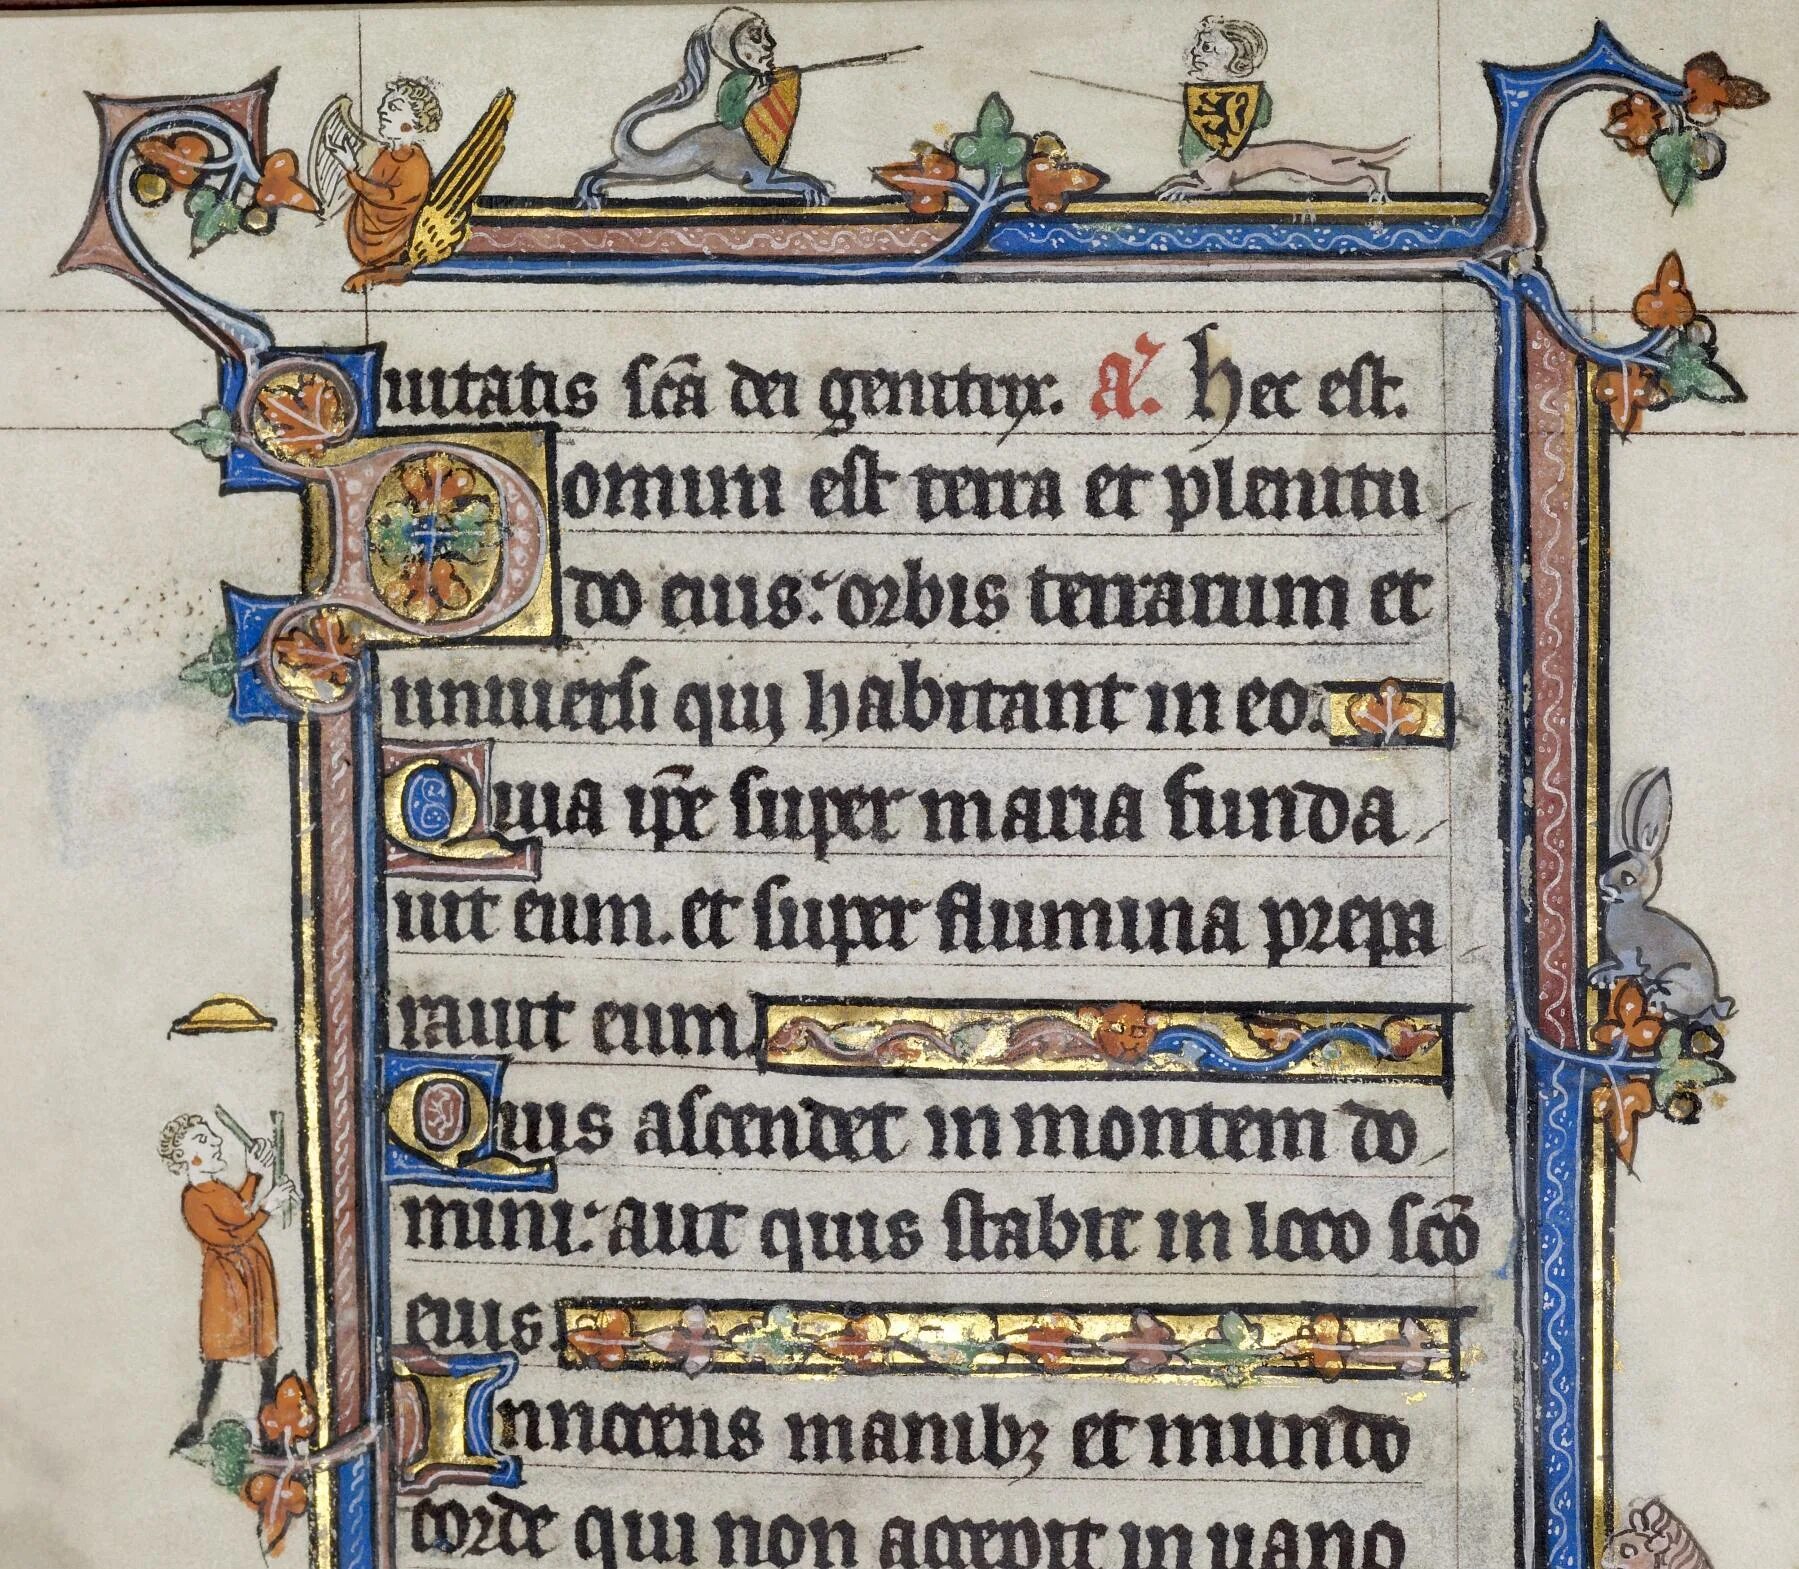 uitatis sc̄a dei genitrix. a᷑. Hec est.
Domini est terra et plenitu
do eius: orbis terrarum et
uniuersi qui habitant in eo.
Quia ip̄e super maria funda
uit eum. et super flumina prepa
rauit eum.
Quis ascendet in montem do
mini: aut quis stabit in loco sc̄o
eius.
Innocens manibꝫ et mundo
corde qui non accepit in uano